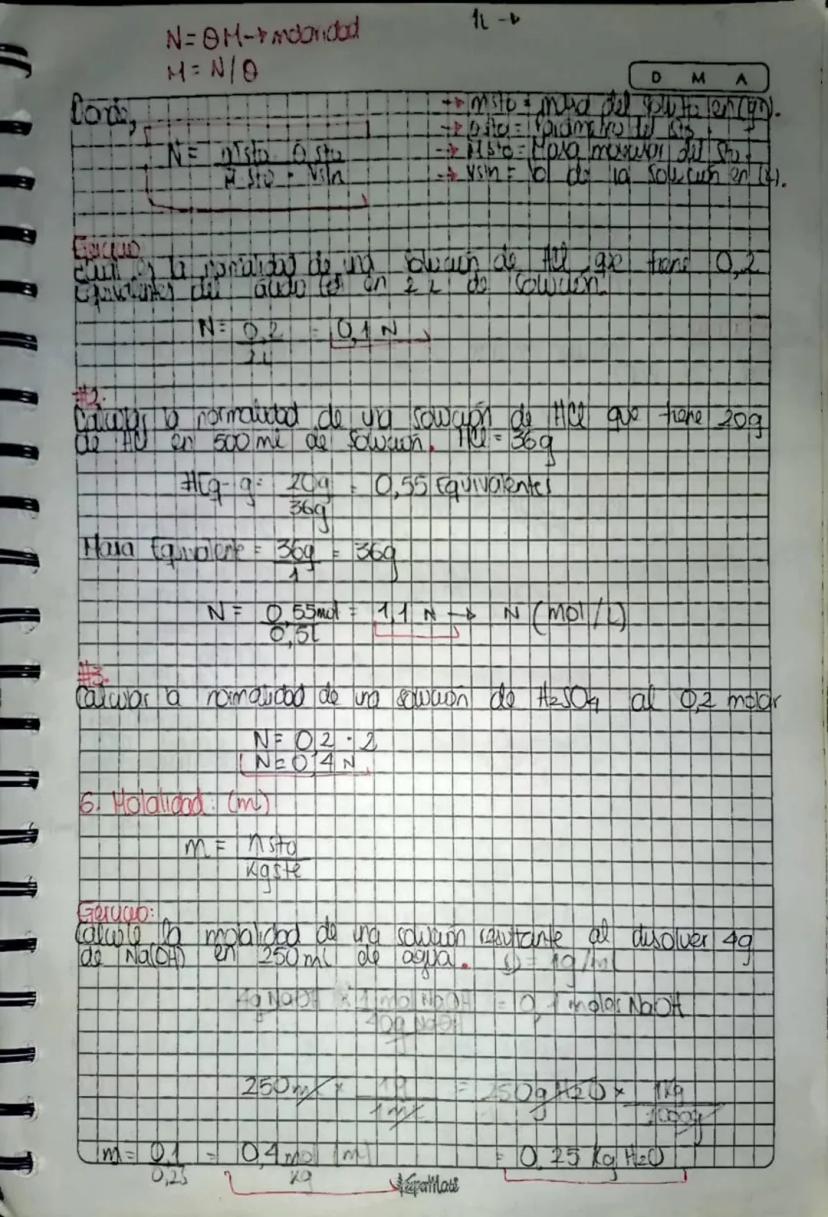 1L →
N = θM → molaridad
M = N/θ
D M A
Donde,
→ msto = masa del soluto en (gr).
→ θsto = parámetro del sto
N = msto θsto
Msto · Vsln
→ Msto = Masa molecular del sto
→ Vsln = de la solución en (L).
Ejercicio
cual es la normalidad de una solución de HCl que tiene 0,2
Equivalentes del ácido en 2 L de solución.
N = 0,2 = 0,1 N
2L
#2.
Calcular la normalidad de una solución de HCl que tiene 20g
de HCl en 500 ml de solución. HCl = 36g
#Eq-g = 20g = 0,55 Equivalentes
36g
Masa Equivalente = 36g = 36g
1
N = 0,55mol = 1,1 N → N (mol/L)
0,5L
#3.
Calcular la normalidad de una solución de H2SO4 al 0,2 molar
N = 0,2 · 2
N = 0,4 N
6. Molalidad: (m)
m = nsto
kgste
Ejercicio:
Calcule la molalidad de una solución resultante al disolver 4g
de Na(OH) en 250ml de agua. D = 1g/ml
4g NaOH × 1 mol NaOH = 0,1 moles NaOH
40g NaOH
250ml × 1g = 250g H2O × 1kg
1ml 1000g
m = 0,1 = 0,4 mol (m) = 0,25 kg H2O
0,25 kg